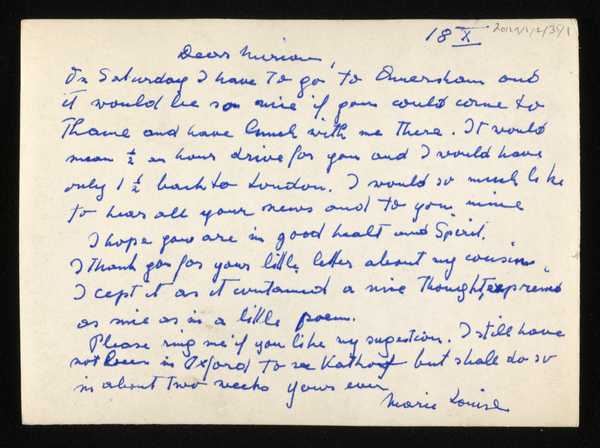 18 X
Dear Miriam,
On Saturday I have to go to Amersham and
it would be so nice if you could come to
Thame and have lunch with me there. It would
mean ½ an hour drive for you and I would have
only 1 ½ back to London. I would so much like
to hear all your news and to you mine
I hope you are in good healt and Spirit.
I thank you for your little letter about my cousin,
I cept it as it contained a nice thought, expressed
as nice as in a little poem.
Please ring me if you like my sugestion. I still have
not been in Oxford to see but shall do so
in about two weeks yours ever
Marie Louise